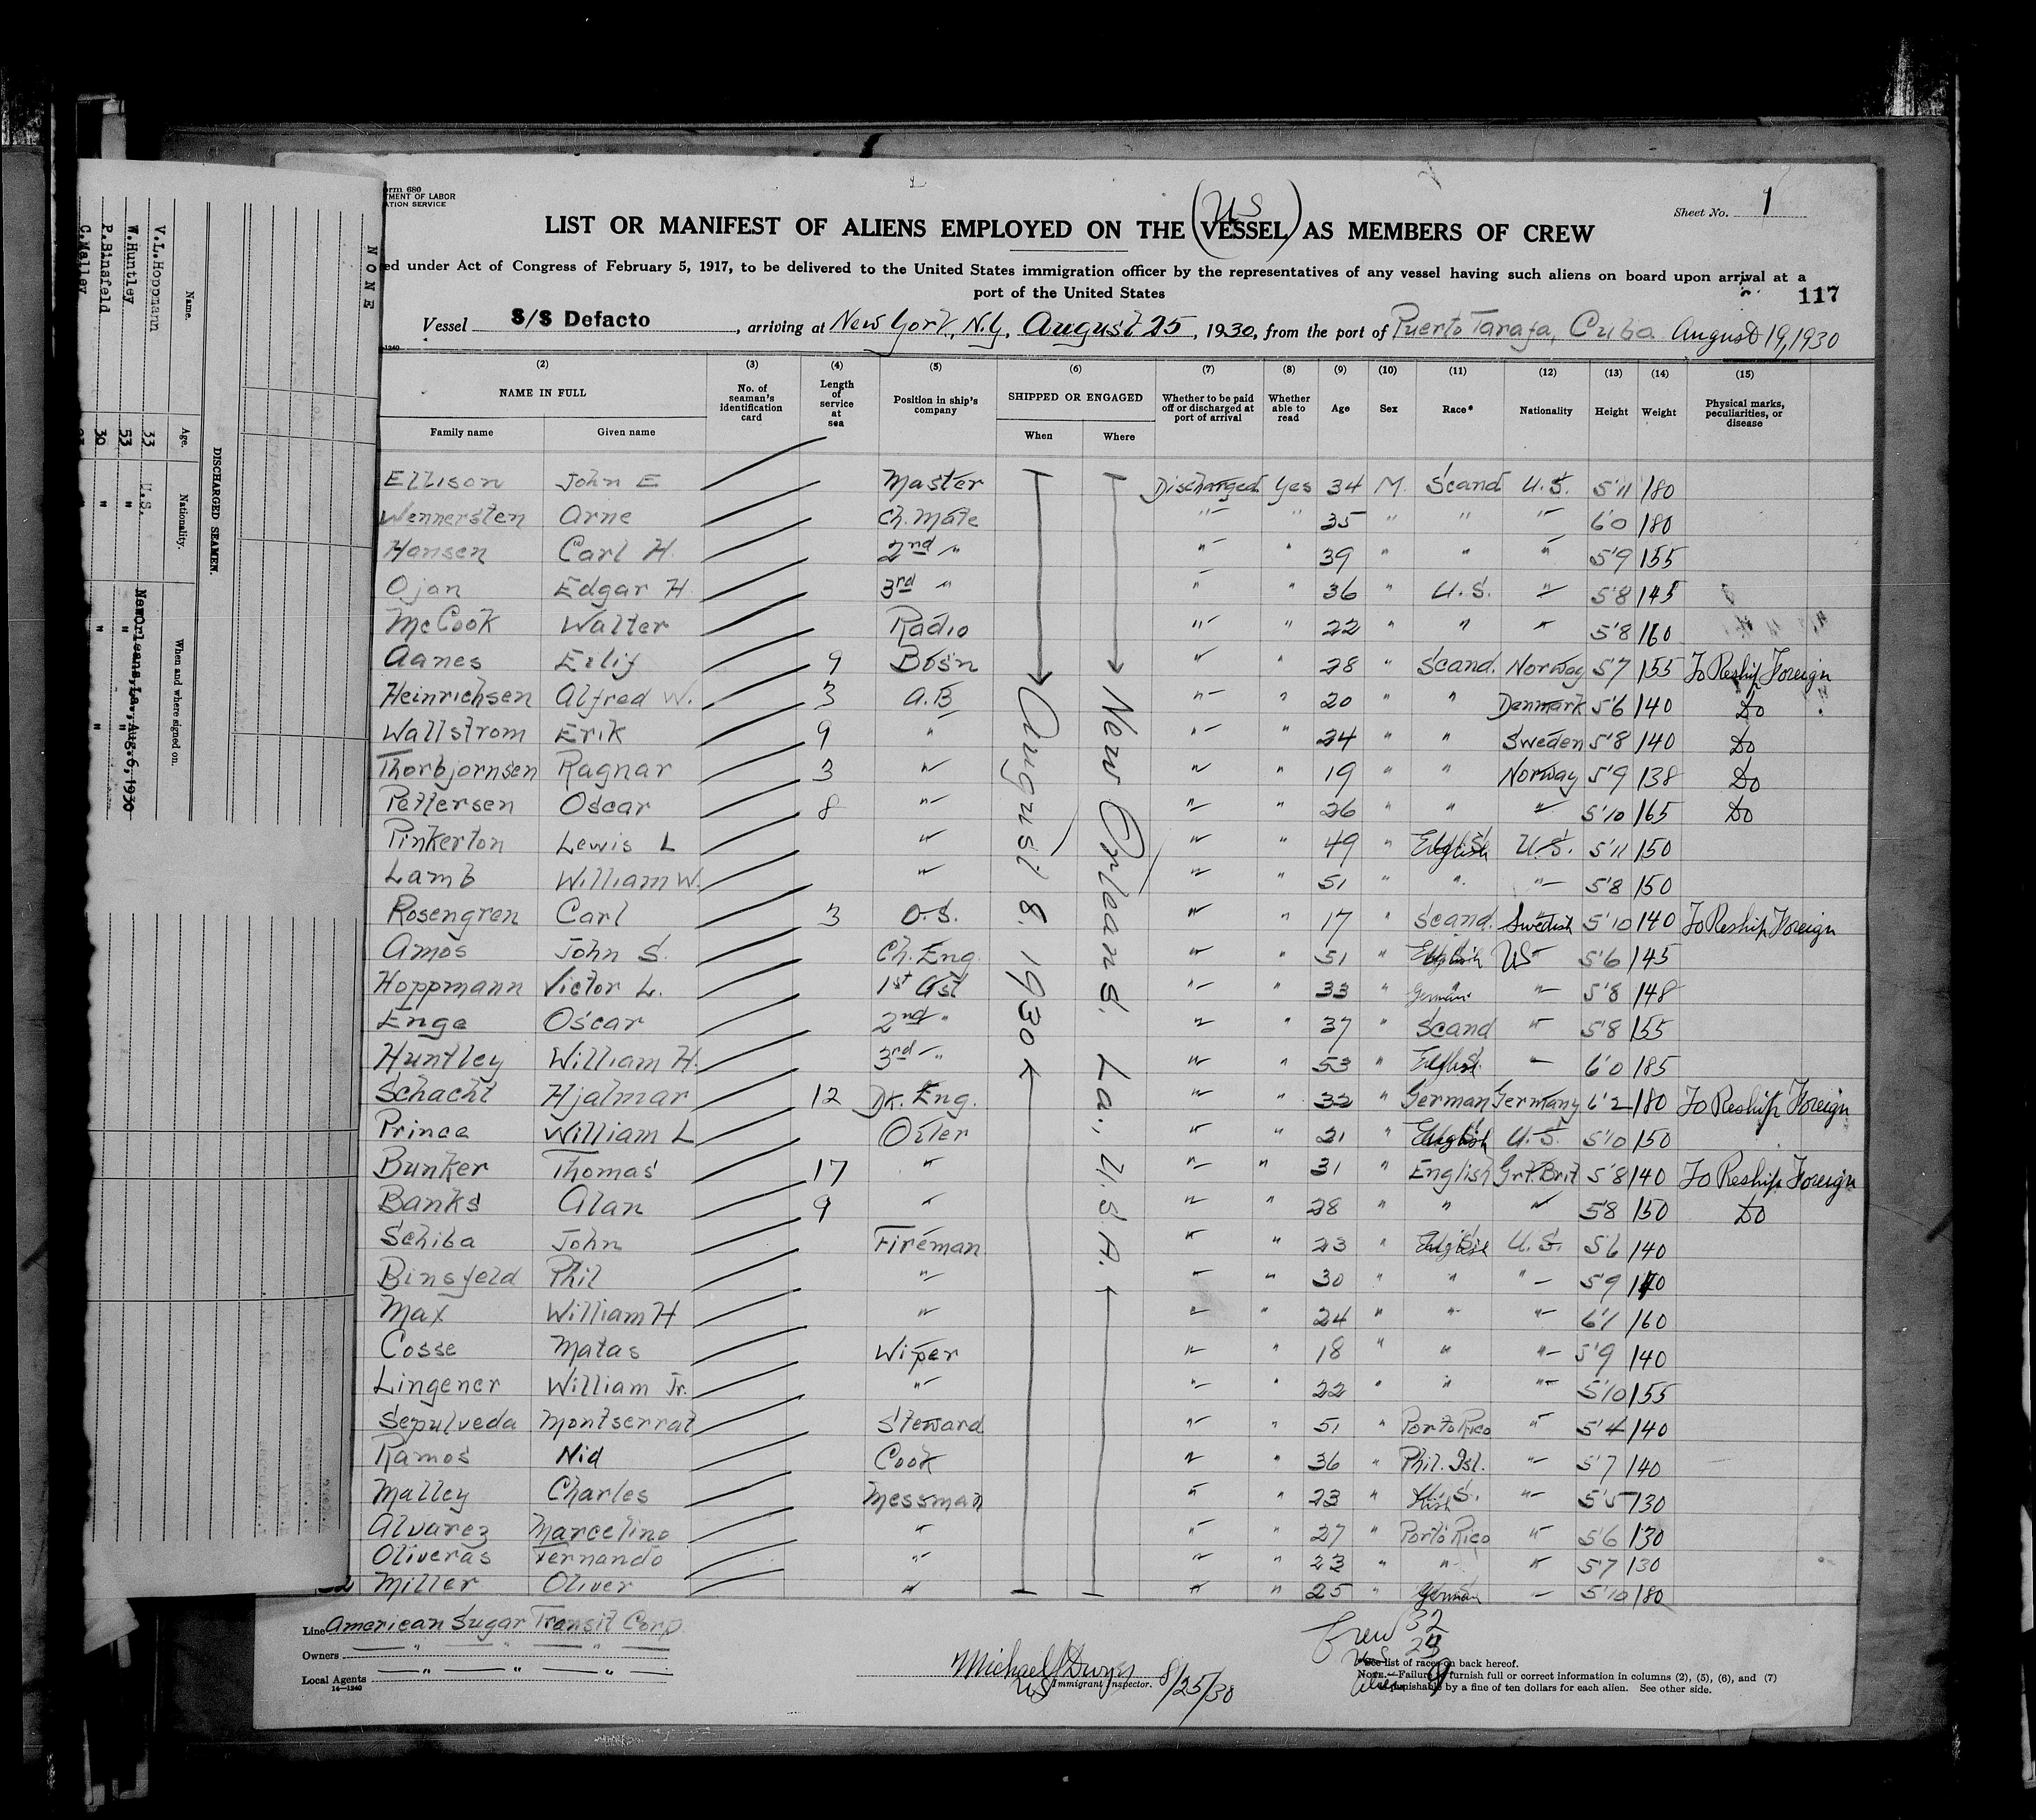 Form 680
MENT OF LABOR
ATION SERVICE
LIST OR MANIFEST OF ALIENS EMPLOYED ON THE (VESSEL) AS MEMBERS OF CREW
US
Sheet No. 1
ed under Act of Congress of February 5, 1917, to be delivered to the United States immigration officer by the representatives of any vessel having such aliens on board upon arrival at a
port of the United States
117
Vessel S/S Defacto, arriving at New York, N.Y. August 25, 1930, from the port of Puerto Tarafa, Cuba August 19, 1930
(2) (3) (4) (5) (6) (7) (8) (9) (10) (11) (12) (13) (14) (15)
NAME IN FULL No. of seaman's identification card Length of service at sea Position in ship's company SHIPPED OR ENGAGED Whether to be paid off or discharged at port of arrival Whether able to read Age Sex Race* Nationality Height Weight Physical marks, peculiarities, or disease
Family name Given name When Where
Ellison John E Master Discharged Yes 34 M. Scand U.S. 5'11 180
Wennersten Arne Ch. Mate " " 35 " " " 6'0 180
Hansen Carl H. 2nd " " " 39 " " " 5'9 155
Ojan Edgar H 3rd " " " 36 " U.S. " 5'8 145
McCook Walter Radio " " 22 " " " 5'8 160
Aanes Erlif 9 Bosn " " 28 " Scand. Norway 5'7 155 To Reship Foreign
Heinrichsen Alfred W. 3 A.B " " 20 " " Denmark 5'6 140 Do
Wallstrom Erik 9 " " " 24 " " Sweden 5'8 140 Do
Thorbjornsen Ragnar 3 " " " 19 " " Norway 5'9 138 Do
Pettersen Oscar 8 " " " 26 " " " 5'10 165 Do
Pinkerton Lewis L " " " 49 " English U.S. 5'11 150
Lamb William W. " " " 51 " " " 5'8 150
Rosengren Carl 3 O.S. " " 17 " Scand. Swedish 5'10 140 To Reship Foreign
Amos John S. Ch. Eng. " " 51 " English US 5'6 145
Hoppmann Victor L. 1st Ast " " 33 " German " 5'8 148
Enge Oscar 2nd " " " 37 " Scand " 5'8 155
Huntley William H. 3rd " " " 53 " English " 6'0 185
Schacht Hjalmar 12 Dk. Eng. " " 32 " German Germany 6'2 180 To Reship Foreign
Prince William L Oiler " " 21 " English U.S. 5'10 150
Bunker Thomas 17 " " " 31 " English Grt. Brit 5'8 140 To Reship Foreign
Banks Alan 9 " " " 28 " " " 5'8 150 Do
Schiba John Fireman " " 23 " English U.S. 5'6 140
Binsfeld Phil " " " 30 " " " 5'9
Max William H " " " 24 " " " 6'1 160
Cosse Matas Wiper " " 18 " " " 5'9 140
Lingener William Jr. " " " 22 " " " 5'10 155
Sepulveda Montserrat Steward " " 51 " Porto Rico " 5'4 140
Ramos Nid Cook " " 36 " Phil. Isl. " 5'7 140
Malley Charles Messman " " 23 " U.S. Irish " 5'5 130
Alvarez Marcelino " " " 27 " Porto Rico " 5'6 130
Oliveras Fernando " " " 23 " " " 5'7 130
Miller Oliver " " " 25 " German " 5'10 180
August 8. 1930
New Orleans. La., U.S.A.
Line American Sugar Transit Corp.
Owners " " " "
Local Agents " " "
14-1240
Michael J Dwyer 8/25/30
US
Immigrant Inspector.
Crew 32
US
Alien 9
*See list of races on back hereof.
NOTE.—Failure to furnish full or correct information in columns (2), (5), (6), and (7)
is punishable by a fine of ten dollars for each alien. See other side.
NONE
DISCHARGED SEAMEN.
Name. Age. Nationality. When and where signed on.
V.L.Hoppmann 33 U.S. NewOrleans,La.,Aug.6,1930
W.Huntley 53 " " "
P.Binsfeld 30 " " "
C.Malley